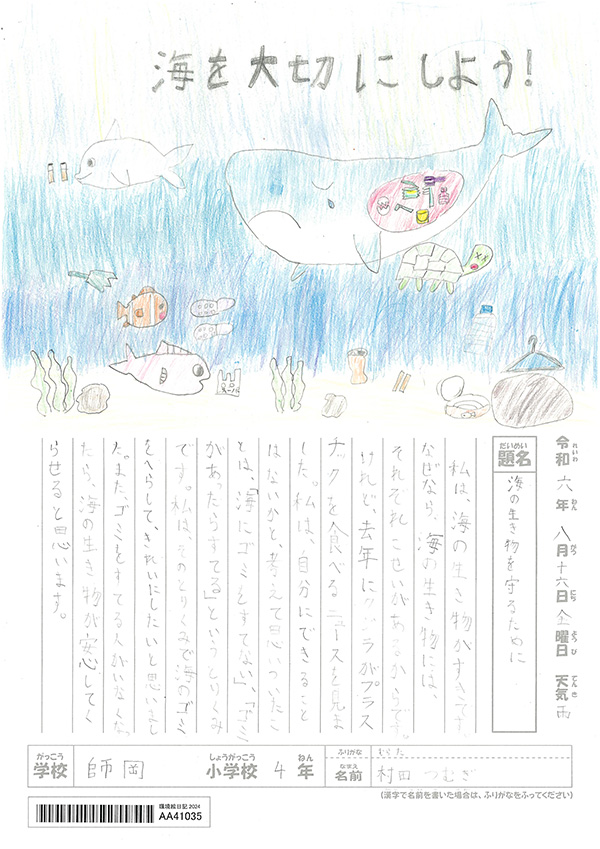 海を大切にしよう！
令和六年八月十六日金曜日 天気 雨
れいわ ねん がつ にち ようび てんき
だいめい
題名 海の生き物を守るために
私は、海の生き物がすきです。
なぜなら、海の生き物には、
それぞれこせいがあるからです。
けれど、去年にクジラがプラス
チックを食べるニュースを見ま
した。私は、自分にできること
はないかと、考えて思いついたこ
とは、「海にゴミをすてない」、「ゴミ
があったらすてる」というとりくみ
です。私は、そのとりくみで海のゴミ
をへらして、きれいにしたいと思いまし
た。また、ゴミをすてる人がいなくな
たら、海の生き物が安心してく
らせると思います。
がっこう しょうがっこう ねん ふりがな むらた
学校 師岡 小学校 4年 名前 村田 つむぎ
なまえ
(漢字で名前を書いた場合は、ふりがなをふってください)
環境絵日記 2024
AA41035